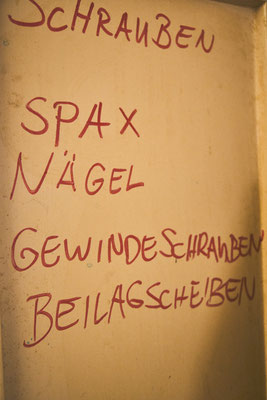 SCHRAUBEN
SPAX
NÄGEL
GEWINDESCHRAUBEN
BEILAGSCHEIBEN